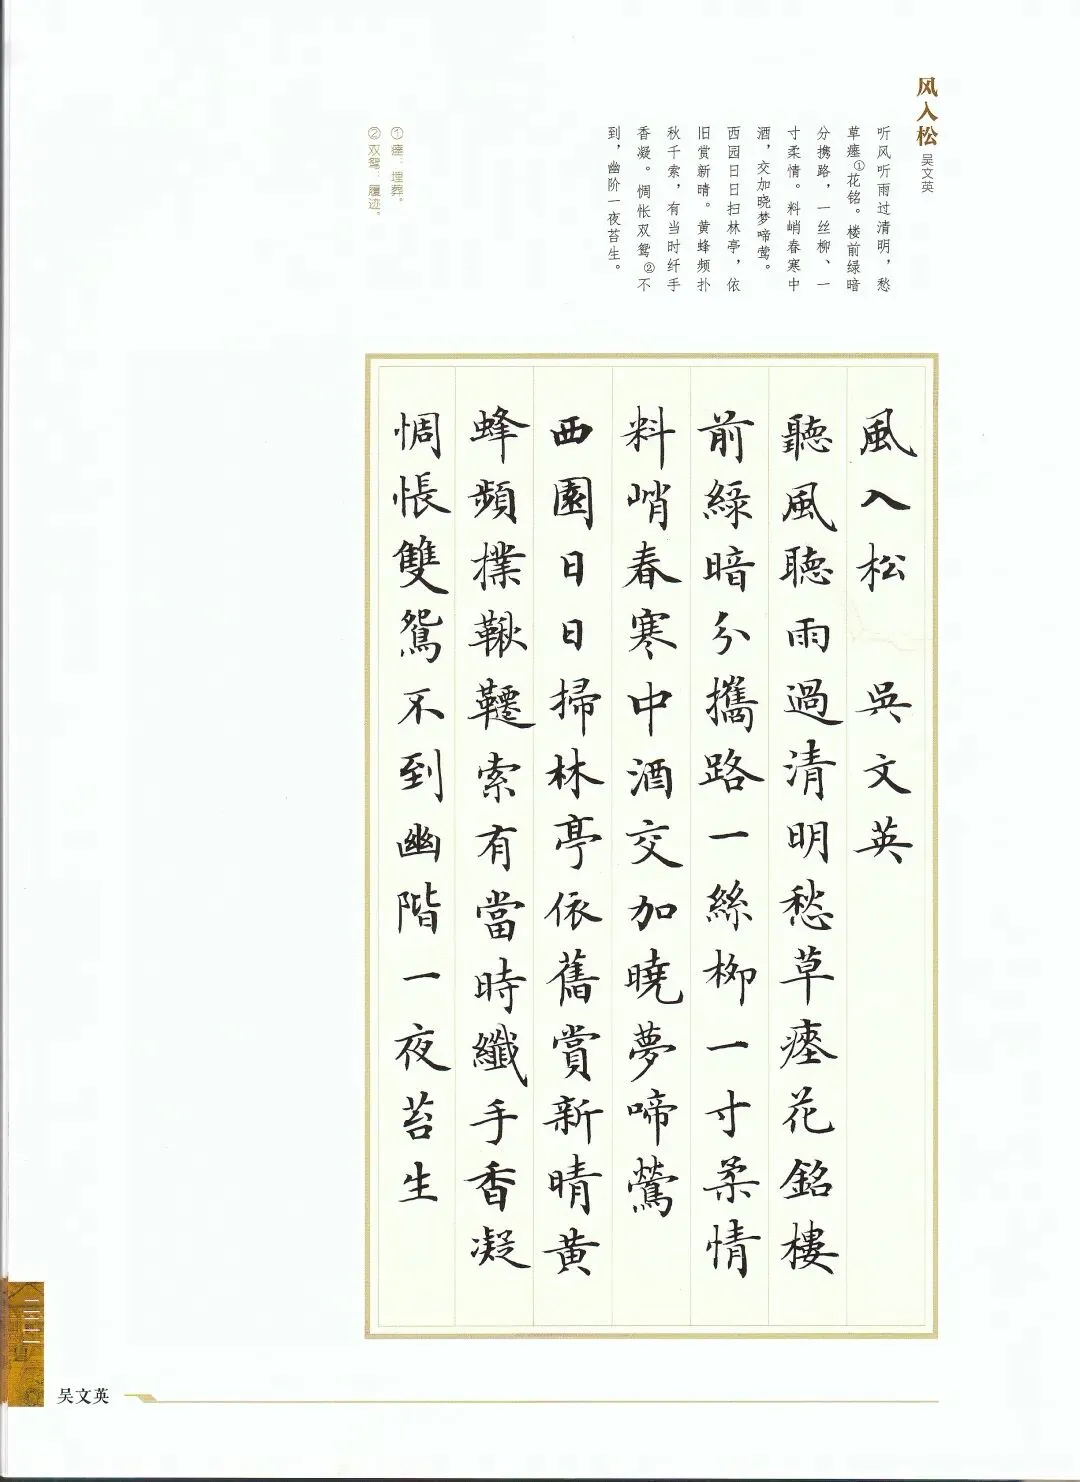 风入松
吴文英
听风听雨过清明，愁
草瘗①花铭。楼前绿暗
分携路，一丝柳、一
寸柔情。料峭春寒中
酒，交加晓梦啼莺。
西园日日扫林亭，依
旧赏新晴。黄蜂频扑
秋千索，有当时纤手
香凝。惆怅双鸳②不
到，幽阶一夜苔生。
①瘗：埋葬。
②双鸳：履迹。
風入松 吳文英
聽風聽雨過清明愁草瘞花銘樓
前綠暗分攜路一絲柳一寸柔情
料峭春寒中酒交加曉夢啼鶯
西園日日掃林亭依舊賞新晴黃
蜂頻撲鞦韆索有當時纖手香凝
惆悵雙鴛不到幽階一夜苔生
吴文英